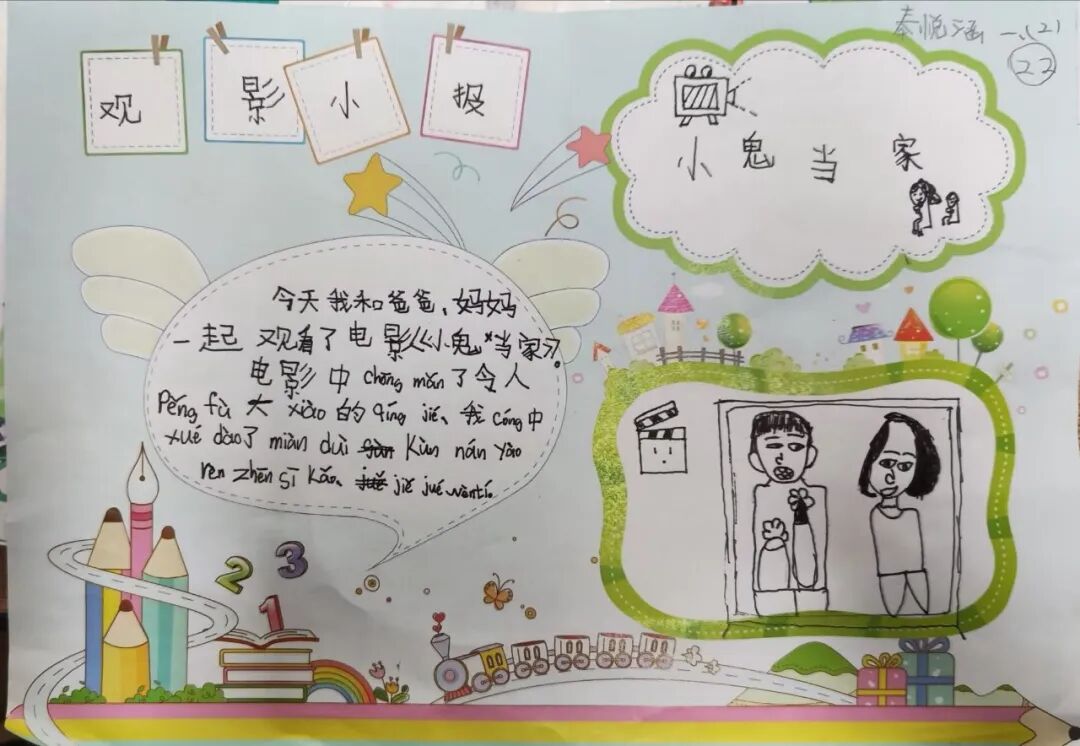 秦悦涵 一、(2)
22
观影小报
小鬼当家
今天我和爸爸、妈妈
一起观看了电影《小鬼当家》。
电影中chōng mǎn了令人
Pěng fù大xiào的qíng jié、我cóng中
xué dào了miàn duì Kùn nán yào
rèn zhēn sī kǎo、jiě jué wèntí。
2 3
1